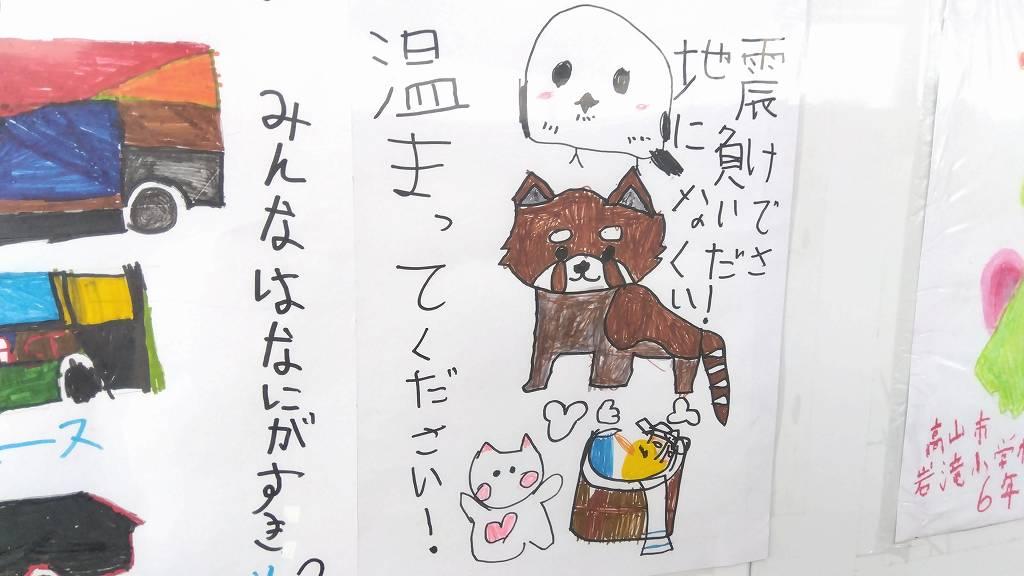 地震
に負け
ないで
くださ
い！
温まってください！
みんなはなにがすき
ース
高山市
岩滝小学
6年